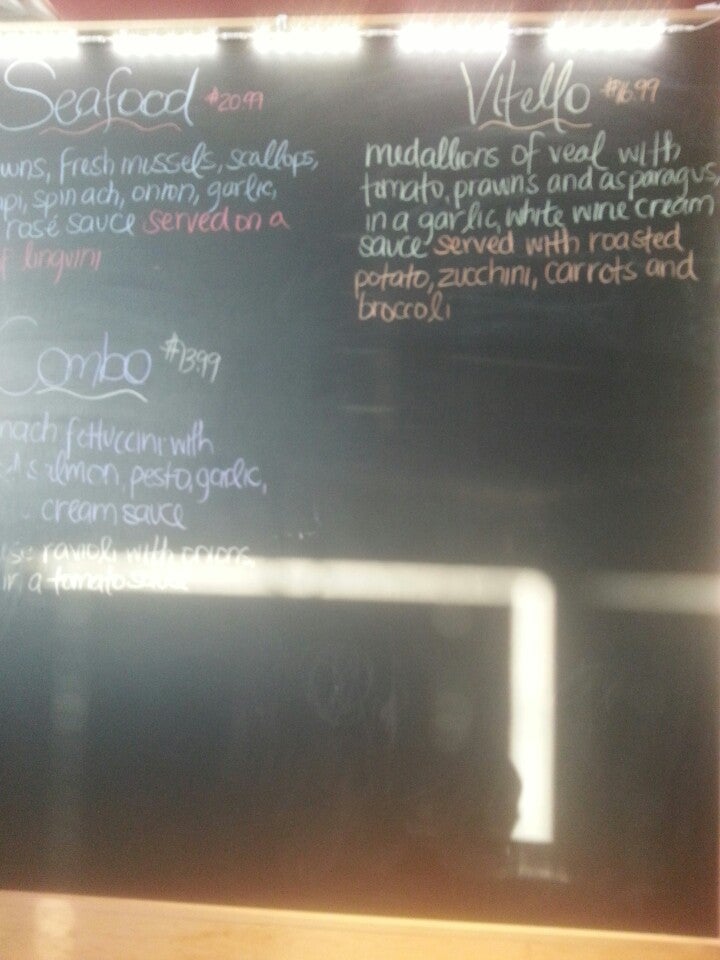 Seafood $20.99
wns, fresh mussels, scallops,
pi, spinach, onion, garlic,
rosé sauce served on a
f linguini
Combo $13.99
nach fettuccini with
salmon, pesto, garlic,
cream sauce
ravioli with onions,
in a tomato sauce
Vitello $16.99
medallions of veal with
tomato, prawns and asparagus,
in a garlic, white wine cream
sauce served with roasted
potato, zucchini, carrots and
broccoli